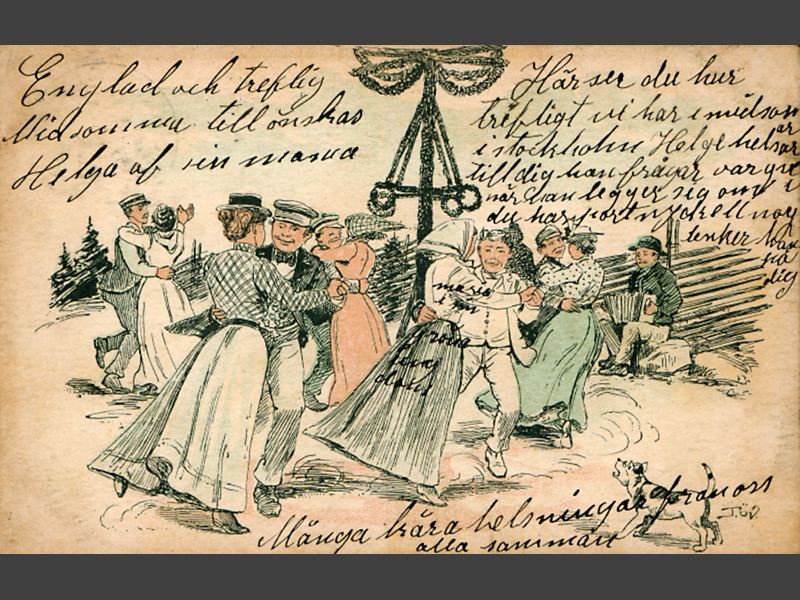 En glad och treflig
Midsommar tillönskas
Helga af sin mama
Här ser du hur
trefligt vi har i midsom
i stockholm Helge helsar
till dig han frågar var
när han legger sig om
du har
tenker han
på
dig
maria
i en
Många kära helsningar från oss
alla samman